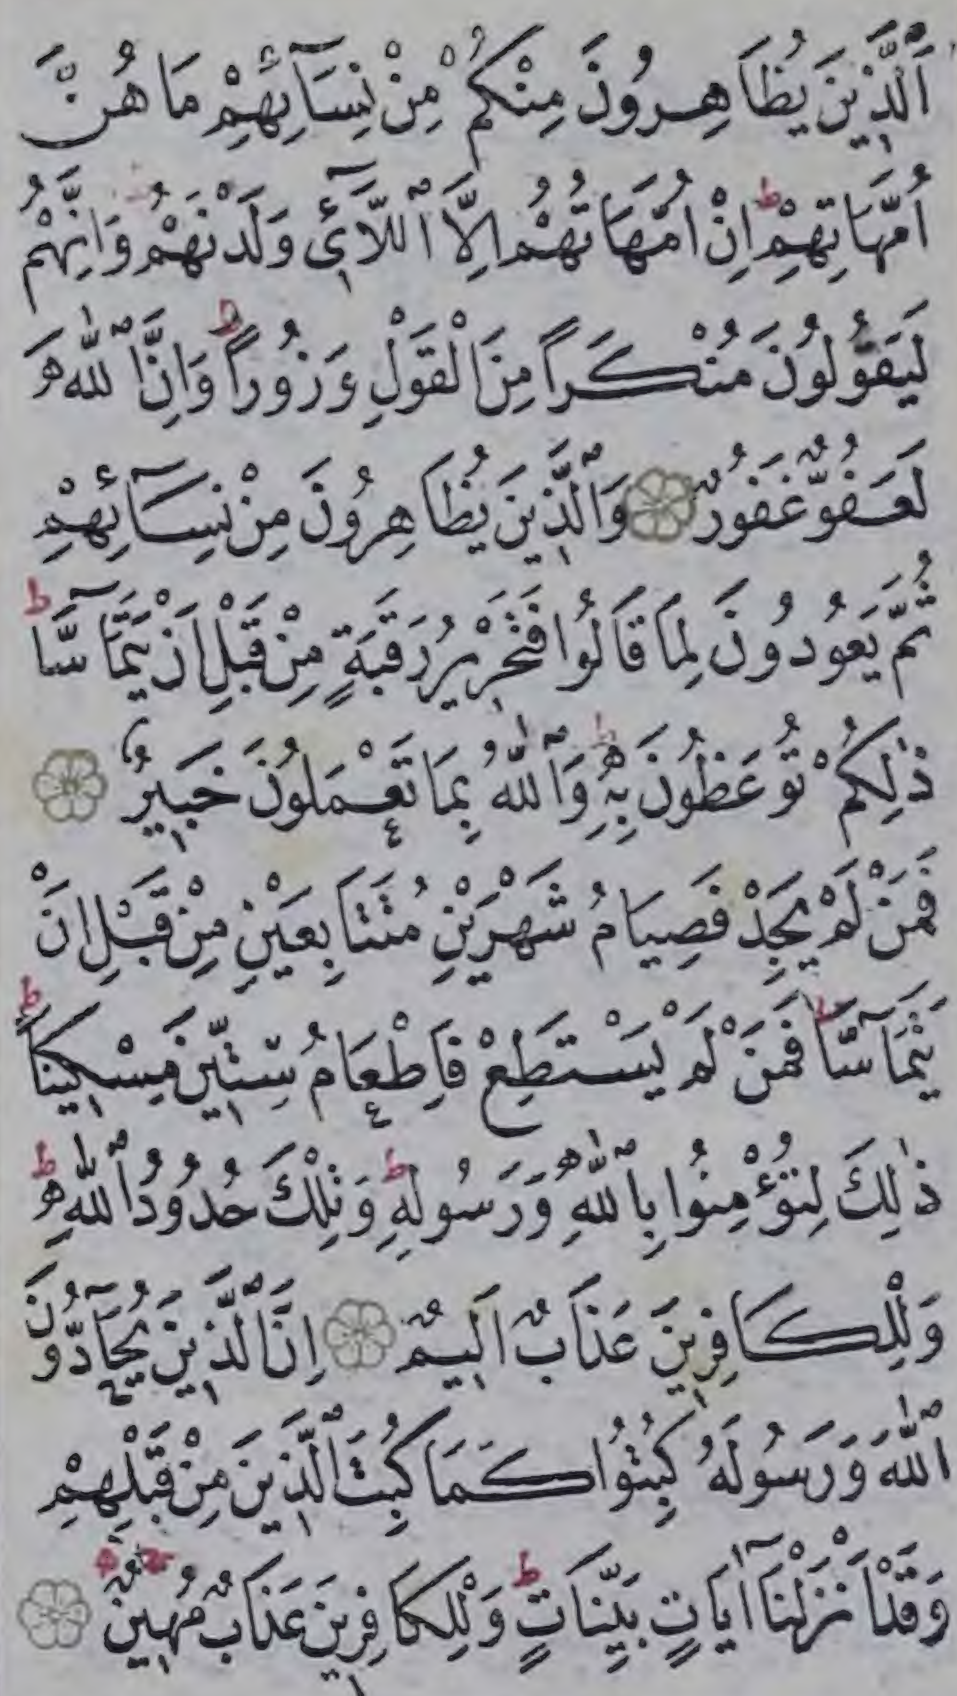 اَلَّذٖينَ يُظَاهِرُونَ مِنْكُمْ مِنْ نِسَٓائِهِمْ مَا هُنَّ
اُمَّهَاتِهِمْؕ اِنْ اُمَّهَاتُهُمْ اِلَّا الّٰٓلـٖٔي وَلَدْنَهُمْؕ وَاِنَّهُمْ
لَيَقُولُونَ مُنْكَرًا مِنَ الْقَوْلِ وَزُورًاؕ وَاِنَّ اللّٰهَ
لَعَفُوٌّ غَفُورٌ وَالَّذٖينَ يُظَاهِرُونَ مِنْ نِسَٓائِهِمْ
ثُمَّ يَعُودُونَ لِمَا قَالُوا فَتَحْرٖيرُ رَقَبَةٍ مِنْ قَبْلِ اَنْ يَتَمَٓاسَّاؕ
ذٰلِكُمْ تُوعَظُونَ بِهٖؕ وَاللّٰهُ بِمَا تَعْمَلُونَ خَبٖيرٌ
فَمَنْ لَمْ يَجِدْ فَصِيَامُ شَهْرَيْنِ مُتَتَابِعَيْنِ مِنْ قَبْلِ اَنْ
يَتَمَٓاسَّاؕ فَمَنْ لَمْ يَسْتَطِعْ فَاِطْعَامُ سِتّٖينَ مِسْكٖينًاؕ
ذٰلِكَ لِتُؤْمِنُوا بِاللّٰهِ وَرَسُولِهٖؕ وَتِلْكَ حُدُودُ اللّٰهِؕ
وَلِلْكَافِرٖينَ عَذَابٌ اَلٖيمٌ اِنَّ الَّذٖينَ يُحَٓادُّونَ
اللّٰهَ وَرَسُولَهُ كُبِتُوا كَمَا كُبِتَ الَّذٖينَ مِنْ قَبْلِهِمْ
وَقَدْ اَنْزَلْنَٓا اٰيَاتٍ بَيِّنَاتٍؕ وَلِلْكَافِرٖينَ عَذَابٌ مُهٖينٌ